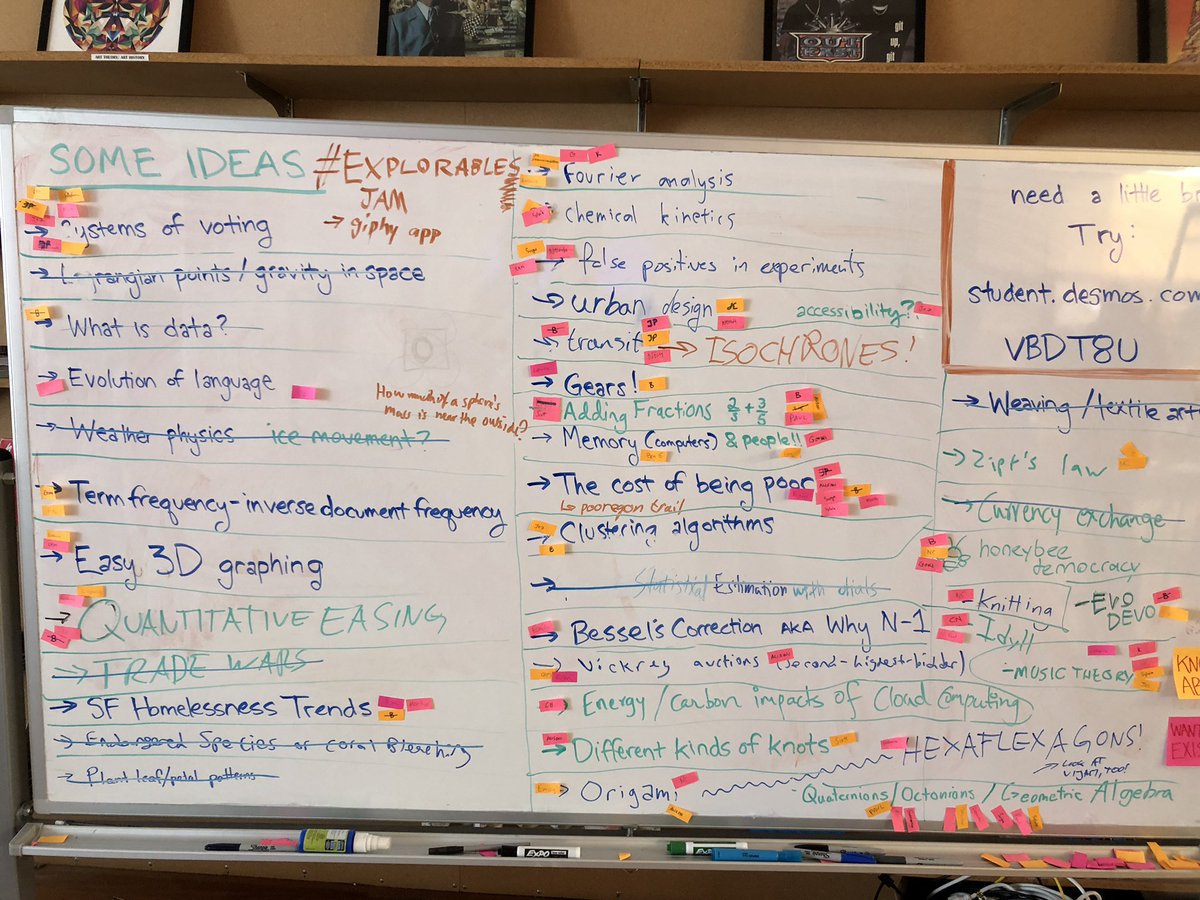 SOME IDEAS
#EXPLORABLES
JAM
→ giphy app
→ Systems of voting
→ Lagrangian points / gravity in space
→ What is data?
→ Evolution of language
How much of a sphere's
mass is near the outside?
→ Weather physics ice movement?
→ Term frequency-inverse document frequency
→ Easy 3D graphing
→ QUANTITATIVE EASING
→ TRADE WARS
→ SF Homelessness Trends
→ Endangered Species or coral Bleaching
→ Plant leaf/petal patterns
→ Fourier analysis
→ chemical kinetics
→ false positives in experiments
→ urban design accessibility?
→ transit → ISOCHRONES!
→ Gears!
Adding Fractions 2/3 + 3/5
→ Memory (computers) & people!!
→ The cost of being poor
↳ pooregon trail
→ Clustering algorithms
→ Statistial Estimation with
→ Bessel's Correction AKA Why N-1
→ Vickrey auctions (second-highest-bidder)
→ Energy/carbon impacts of Cloud Computing
→ Different kinds of knots
HEXAFLEXAGONS!
LOOK AT
VIHART, TOO!
→ Origami
- Quaternions/Octonions / Geometric Algebra
need a little
Try:
student.desmos.com
VBDT8U
→ Weaving /textile
→ Zipf's law
→ Currency exchange
honeybee
democracy
- Knitting
- EVO
DEVO
- Idyll
- MUSIC THEORY
WANT
EXPO
OUT